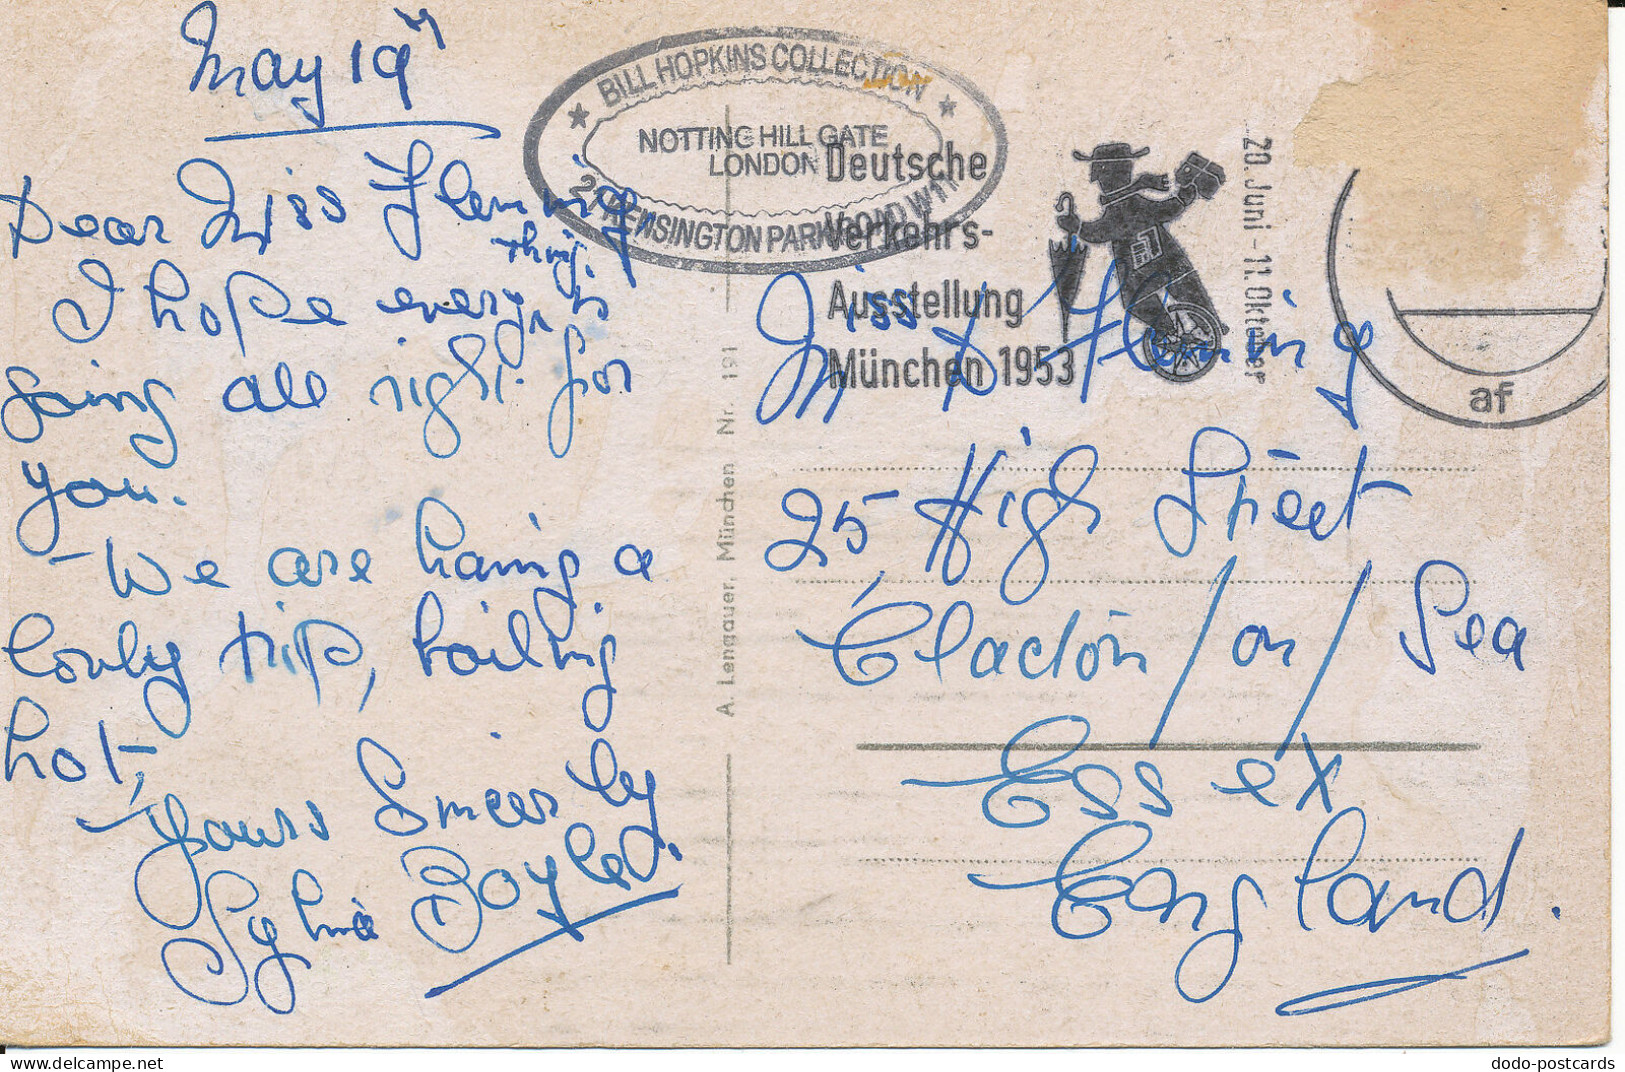 May 19th
Dear Miss Fleming,
I hope everything is
going all right for
you.
- We are having a
lovely trip, boiling
hot,
Yours Sincerely
Sylvia
BILL HOPKINS COLLECTION
NOTTING HILL GATE
LONDON
KENSINGTON PARK ROAD W11
Deutsche
Verkehrs-
Ausstellung
München 1953
20. Juni - 11. Oktober
af
A. Lengauer, München Nr. 191
Miss Fleming
25, High Street
Clacton / on / Sea
Essex
England.
dodo-postcards